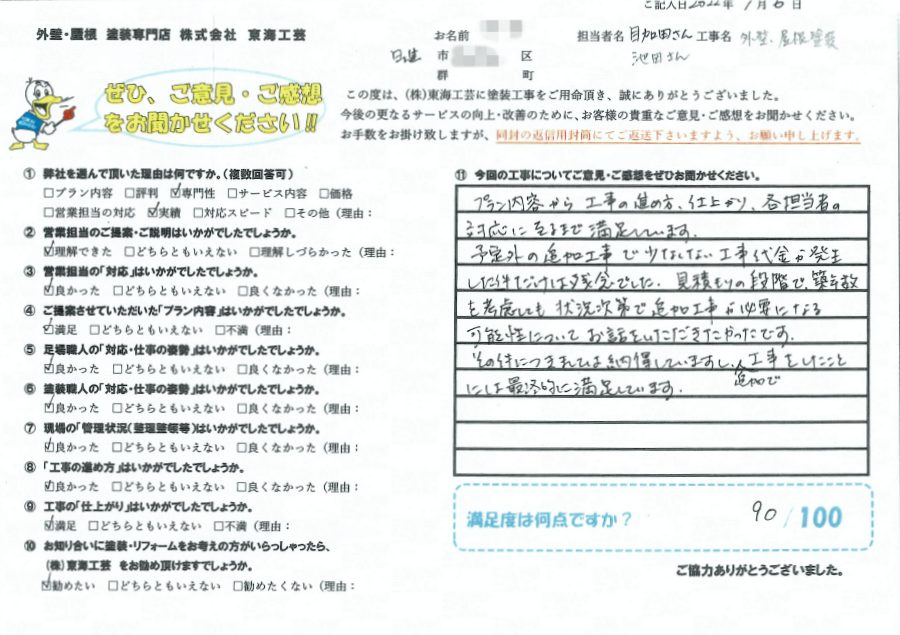 ご記入日2022年 9月6日
外壁・屋根 塗装専門店 株式会社 東海工芸
お名前
担当者名 目加田さん 工事名 外壁、屋根塗装
日進 市 区
池田さん
群 町
ぜひ、ご意見・ご感想
をお聞かせください!!
この度は、(株)東海工芸に塗装工事をご用命頂き、誠にありがとうございました。
今後の更なるサービスの向上・改善のために、お客様の貴重なご意見・ご感想をお聞かせください。
お手数をお掛け致しますが、同封の返信用封筒にてご返送下さいますよう、お願い申し上げます。
① 弊社を選んで頂いた理由は何ですか。(複数回答可)
□プラン内容 □評判 ☑専門性 □サービス内容 □価格
□営業担当の対応 ☑実績 □対応スピード □その他(理由:
② 営業担当のご提案・ご説明はいかがでしたでしょうか。
☑理解できた □どちらともいえない □理解しづらかった(理由:
③ 営業担当の「対応」はいかがでしたでしょうか。
☑良かった □どちらともいえない □良くなかった(理由:
④ ご提案させていただいた「プラン内容」はいかがでしたでしょうか。
☑満足 □どちらともいえない □不満(理由:
⑤ 足場職人の「対応・仕事の姿勢」はいかがでしたでしょうか。
☑良かった □どちらともいえない □良くなかった(理由:
⑥ 塗装職人の「対応・仕事の姿勢」はいかがでしたでしょうか。
☑良かった □どちらともいえない □良くなかった(理由:
⑦ 現場の「管理状況(整理整頓等)はいかがでしたでしょうか。
☑良かった □どちらともいえない □良くなかった(理由:
⑧ 「工事の進め方」はいかがでしたでしょうか。
☑良かった □どちらともいえない □良くなかった(理由:
⑨ 工事の「仕上がり」はいかがでしたでしょうか。
☑満足 □どちらともいえない □不満(理由:
⑩ お知り合いに塗装・リフォームをお考えの方がいらっしゃったら、
(株)東海工芸 をお勧め頂けますでしょうか。
☑勧めたい □どちらともいえない □勧めたくない(理由:
⑪ 今回の工事についてご意見・ご感想をぜひお聞かせください。
プラン内容から工事の進め方、仕上がり、各担当者の
対応にまで満足しています。
予定外の追加工事で少なくない工事代金が発生
した件だけは残念でした。見積もりの段階で、築年数
を考慮しても状況次第で追加工事が必要になる
可能性についてお話をいただきたかったです。
その件につきましては納得していますし、工事をしたこと
追加で
には最終的に満足しています。
満足度は何点ですか? 90/100
ご協力ありがとうございました。